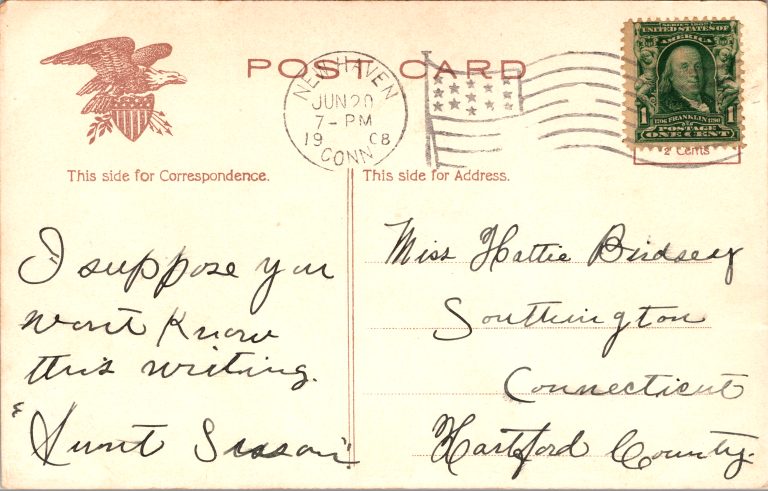 POST CARD
NEW HAVEN
JUN 20
7-PM
1908
CONN.
SERIES 1902
UNITED STATES OF
AMERICA
1 1
1706 FRANKLIN 1790
POSTAGE
ONE CENT
2 Cents
This side for Correspondence.
This side for Address.
I suppose you
wont know
this writing.
"Aunt Susan"
Miss Hattie Birdsey
Southington
Connecticut
Hartford County.